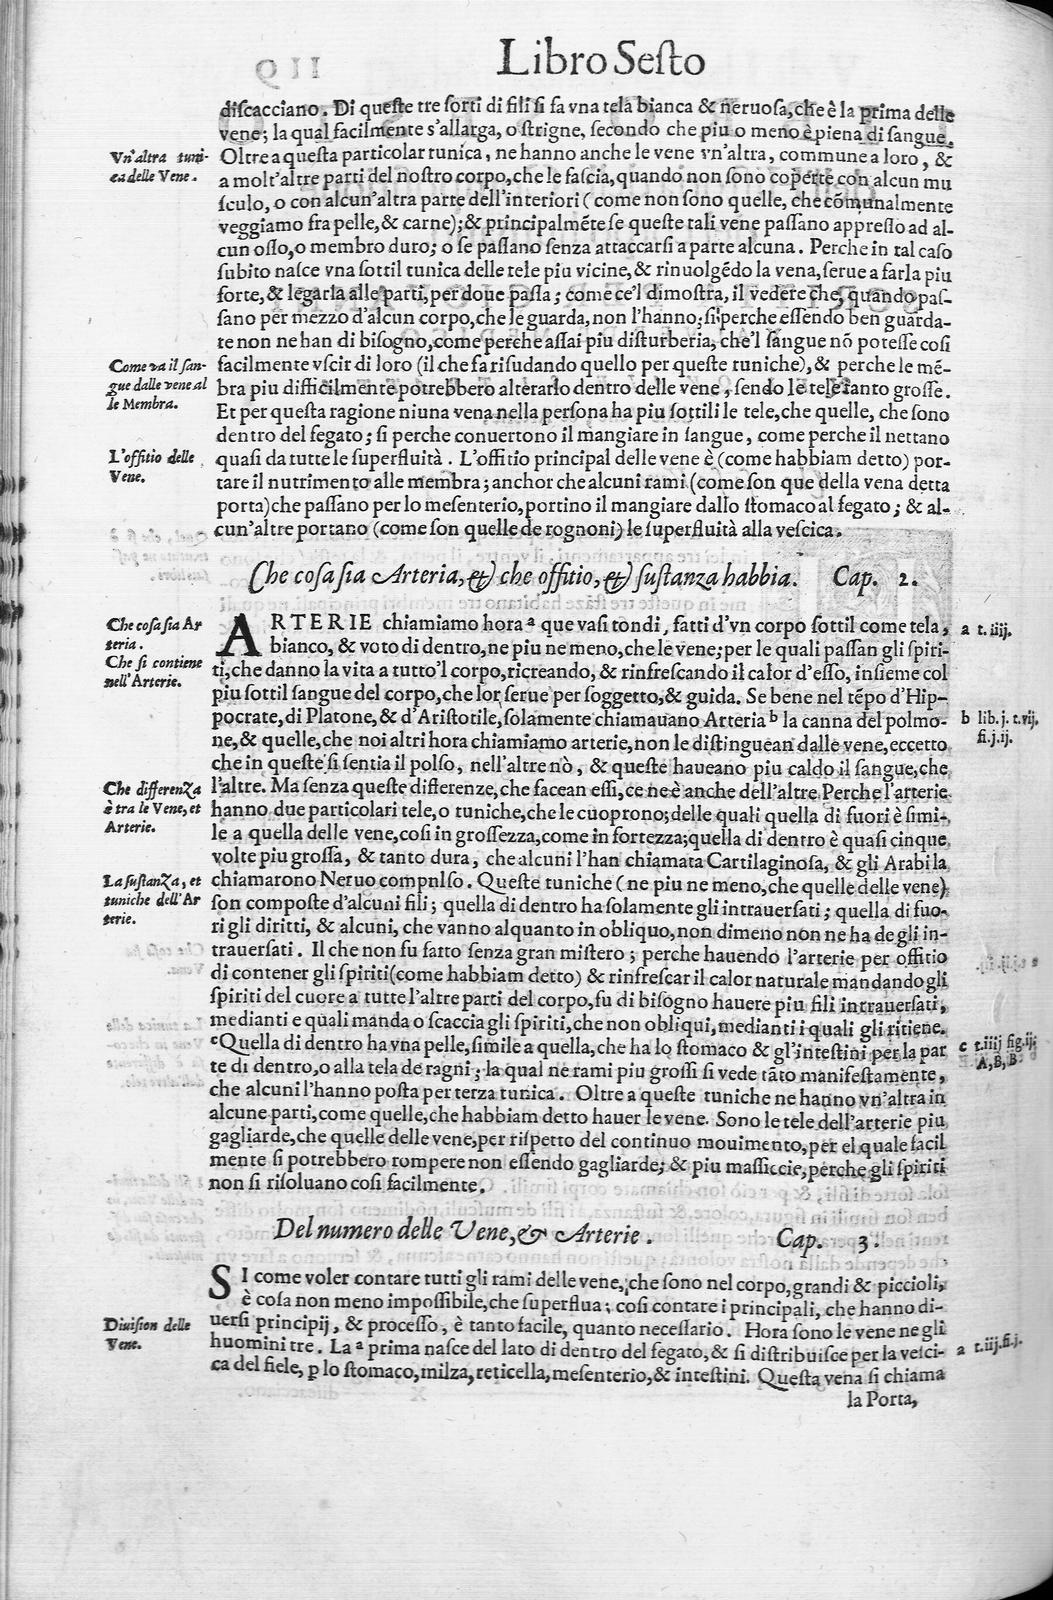 Libro Seſto
diſcacciano. Di queſte tre ſorti di fili ſi fa vna tela bianca & neruoſa, che è la prima delle
vene; la qual facilmente s'allarga, o ſtrigne, ſecondo che piu o meno è piena di ſangue.
Vn'altra tuni-
ca delle Vene.
Oltre a queſta particolar tunica, ne hanno anche le vene vn'altra, commune a loro, &
a molt'altre parti del noſtro corpo, che le faſcia, quando non ſono copérte con alcun mu
ſculo, o con alcun'altra parte dell'interiori (come non ſono quelle, che cōmunalmente
veggiamo fra pelle, & carne); & principalmēte ſe queſte tali vene paſſano appreſſo ad al-
cun oſſo, o membro duro; o ſe paſſano ſenza attaccarſi a parte alcuna. Perche in tal caſo
ſubito naſce vna ſottil tunica delle tele piu vicine, & rinuolgēdo la vena, ſerue a farla piu
forte, & legarla alle parti, per doue paſſa; come ce'l dimoſtra, il vedere che, quando paſ-
ſano per mezzo d'alcun corpo, che le guarda, non l'hanno; ſi perche eſſendo ben guarda-
te non ne han di biſogno, come perche aſſai piu diſturberia, che'l ſangue nō poteſſe coſi
Come va il ſan-
gue dalle vene al
le Membra.
facilmente vſcir di loro (il che fa riſudando quello per queſte tuniche), & perche le mē-
bra piu difficilmente potrebbero alterarlo dentro delle vene, ſendo le tele tanto groſſe.
Et per queſta ragione niuna vena nella perſona ha piu ſottili le tele, che quelle, che ſono
dentro del fegato; ſi perche conuertono il mangiare in ſangue, come perche il nettano
L'offitio delle
Vene.
quaſi da tutte le ſuperfluità. L'offitio principal delle vene è (come habbiam detto) por-
tare il nutrimento alle membra; anchor che alcuni rami (come ſon que della vena detta
porta) che paſſano per lo meſenterio, portino il mangiare dallo ſtomaco al fegato; & al-
cun'altre portano (come ſon quelle de rognoni) le ſuperfluità alla veſcica.
Che coſa ſia Arteria, & che offitio, & ſuſtanza habbia. Cap. 2.
Che coſa ſia Ar
teria.
Che ſi contiene
nell'Arterie.
ARTERIE chiamiamo hora ª que vaſi tondi, fatti d'vn corpo ſottil come tela, a t.iiij.
bianco, & voto di dentro, ne piu ne meno, che le vene; per le quali paſſan gli ſpiri-
ti, che danno la vita a tutto'l corpo, ricreando, & rinfreſcando il calor d'eſſo, inſieme col
piu ſottil ſangue del corpo, che lor ſerue per ſoggetto, & guida. Se bene nel tēpo d'Hip-
pocrate, di Platone, & d'Ariſtotile, ſolamente chiamauano Arteria ᵇ la canna del polmo- b lib.j.t.vij.
fi.j.ij.
ne, & quelle, che noi altri hora chiamiamo arterie, non le diſtinguean dalle vene, eccetto
che in queſte ſi ſentia il polſo, nell'altre nò, & queſte haueano piu caldo il ſangue, che
Che differenza
è tra le Vene, et
Arterie.
l'altre. Ma ſenza queſte differenze, che facean eſſi, ce ne è anche dell'altre. Perche l'arterie
hanno due particolari tele, o tuniche, che le cuoprono; delle quali quella di fuori è ſimi-
le a quella delle vene, coſi in groſſezza, come in fortezza; quella di dentro è quaſi cinque
volte piu groſſa, & tanto dura, che alcuni l'han chiamata Cartilaginoſa, & gli Arabi la
La ſuſtanza, et
tuniche dell'Ar
terie.
chiamarono Neruo compulſo. Queſte tuniche (ne piu ne meno, che quelle delle vene)
ſon compoſte d'alcuni fili; quella di dentro ha ſolamente gli intrauerſati; quella di fuo-
ri gli diritti, & alcuni, che vanno alquanto in obliquo, non dimeno non ne ha de gli in-
trauerſati. Il che non fu fatto ſenza gran miſtero; perche hauendo l'arterie per offitio
di contener gli ſpiriti (come habbiam detto) & rinfreſcar il calor naturale mandando gli
ſpiriti del cuore a tutte l'altre parti del corpo, fu di biſogno hauere piu fili intrauerſati,
medianti e quali manda o ſcaccia gli ſpiriti, che non obliqui, medianti i quali gli ritiene.
ᶜQuella di dentro ha vna pelle, ſimile a quella, che ha lo ſtomaco & gl'inteſtini per la par c t.iiij fig.ij
A, B, B
te di dentro, o alla tela de ragni; la qual ne rami piu groſſi ſi vede tāto manifeſtamente,
che alcuni l'hanno poſta per terza tunica. Oltre a queſte tuniche ne hanno vn'altra in
alcune parti, come quelle, che habbiam detto hauer le vene. Sono le tele dell'arterie piu
gagliarde, che quelle delle vene, per riſpetto del continuo mouimento, per el quale facil
mente ſi potrebbero rompere non eſſendo gagliarde; & piu maſſiccie, perche gli ſpiriti
non ſi riſoluano coſi facilmente.
Del numero delle Vene, & Arterie. Cap. 3.
SI come voler contare tutti gli rami delle vene, che ſono nel corpo, grandi & piccioli,
è coſa non meno impoſſibile, che ſuperflua; coſi contare i principali, che hanno di-
Diuiſion delle
Vene.
uerſi principij, & proceſſo, è tanto facile, quanto neceſſario. Hora ſono le vene ne gli
huomini tre. La ª prima naſce del lato di dentro del fegato, & ſi diſtribuiſce per la veſci- a t.iij.fi.j.
ca del fiele, ꝑ lo ſtomaco, milza, reticella, meſenterio, & inteſtini. Queſta vena ſi chiama
la Porta,